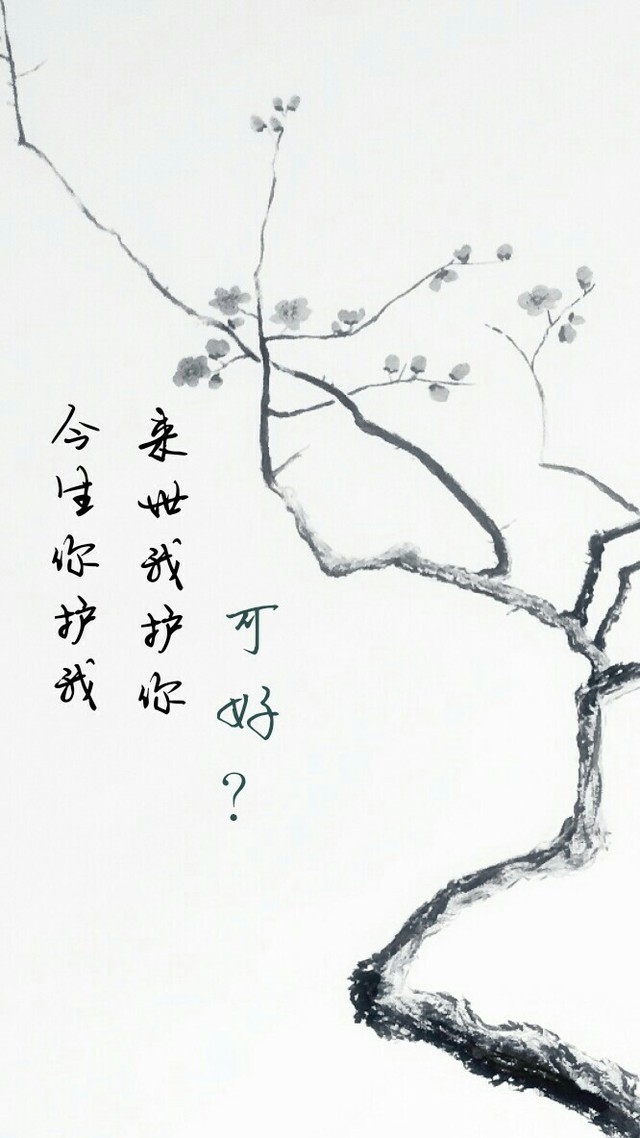 今生你护我
来世我护你
可好？